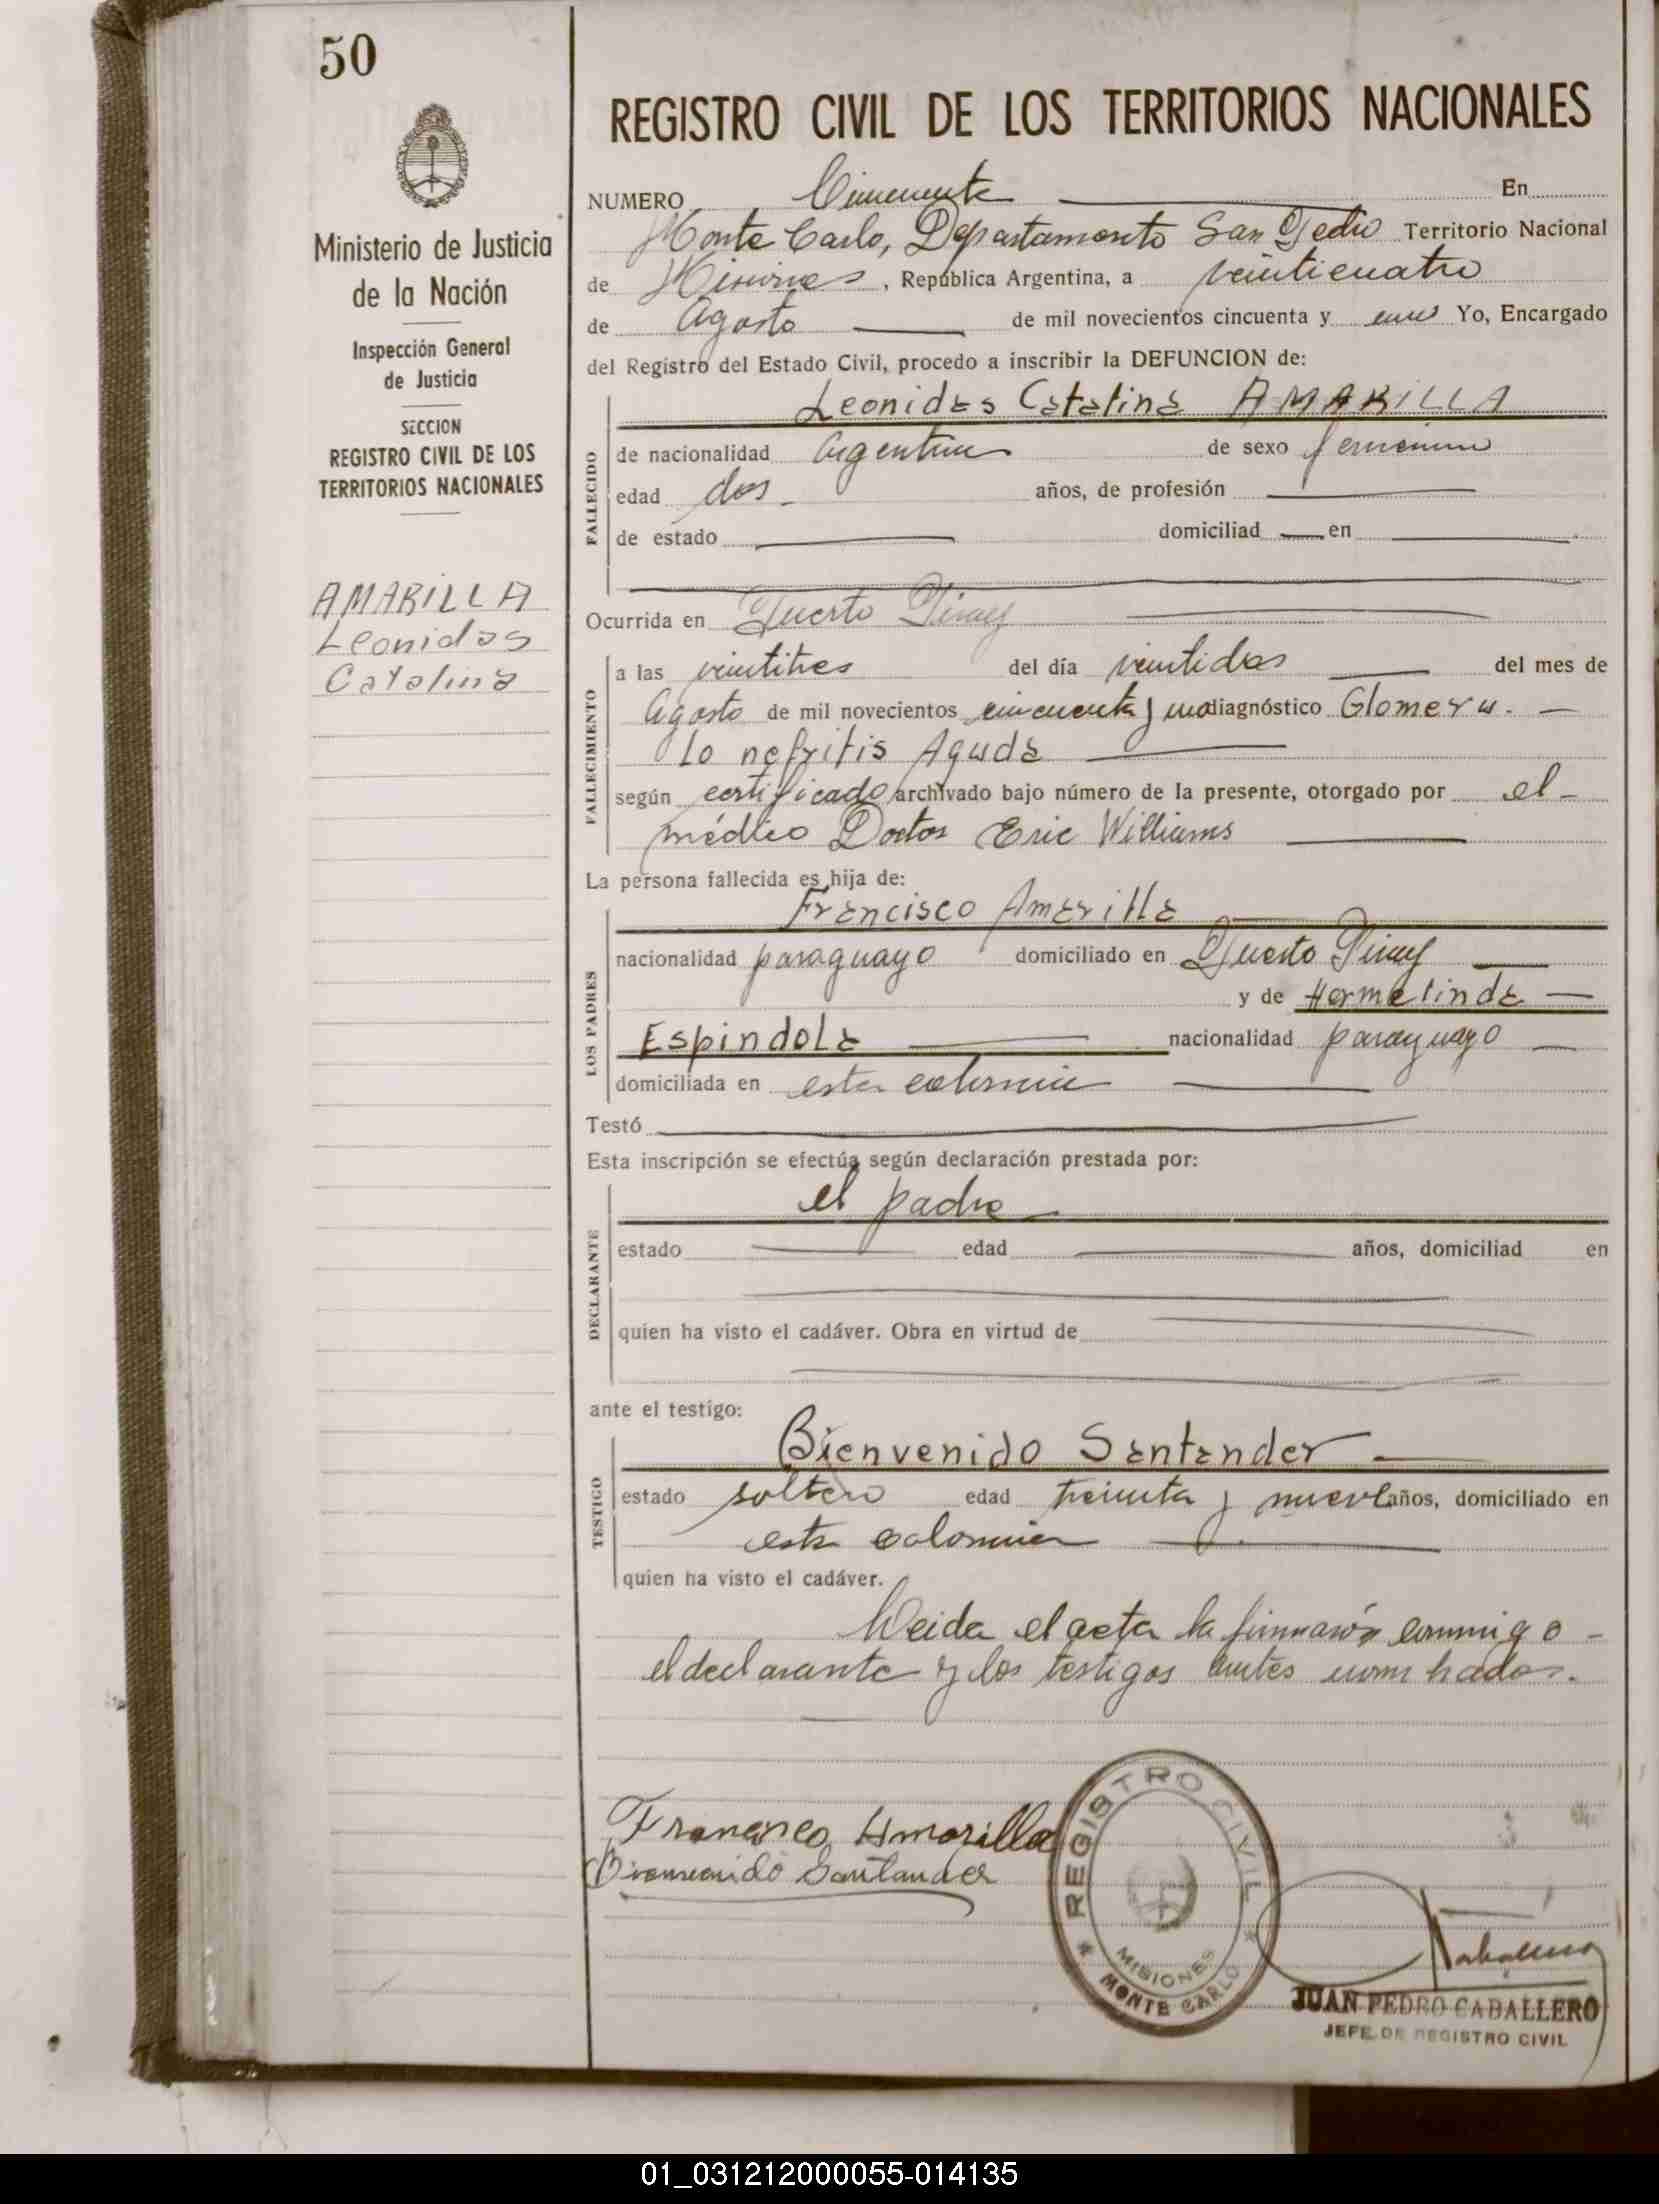 50
Ministerio de Justicia
de la Nación
Inspección General
de Justicia
SECCION
REGISTRO CIVIL DE LOS
TERRITORIOS NACIONALES
AMARILLA
Leonidas
Catalina
REGISTRO CIVIL DE LOS TERRITORIOS NACIONALES
NUMERO Cincuenta En
Monte Carlo, Departamento San Pedro Territorio Nacional
de Misiones, República Argentina, a veinticuatro
de Agosto de mil novecientos cincuenta y uno Yo, Encargado
del Registro del Estado Civil, procedo a inscribir la DEFUNCION de:
Leonidas Catalina AMARILLA
FALLECIDO
de nacionalidad argentina de sexo femenino
edad dos años, de profesión
de estado domiciliad en
Ocurrida en Puerto Piray
FALLECIMIENTO
a las veintitres del día veintidos del mes de
Agosto de mil novecientos cincuenta y uno diagnóstico Glomeru-
lo nefritis Aguda
según certificado archivado bajo número de la presente, otorgado por el
médico Doctor Eric Williams
La persona fallecida es hija de:
LOS PADRES
Francisco Amarilla
nacionalidad paraguayo domiciliado en Puerto Piray
y de Hermelinda
Espindola nacionalidad paraguayo
domiciliada en esta colonia
Testó
Esta inscripción se efectúa según declaración prestada por:
DECLARANTE
el padre
estado edad años, domiciliad en
quien ha visto el cadáver. Obra en virtud de
ante el testigo:
TESTIGO
Bienvenido Santander
estado soltero edad treinta y nueve años, domiciliado en
esta colonia
quien ha visto el cadáver.
Leida el acta la firmarón conmigo
el declarante y los testigos antes nombrados.
Francisco Amarilla
Bienvenido Santander
REGISTRO CIVIL
MISIONES
MONTE CARLO
Caballero
JUAN PEDRO CABALLERO
JEFE DE REGISTRO CIVIL
01_031212000055-014135